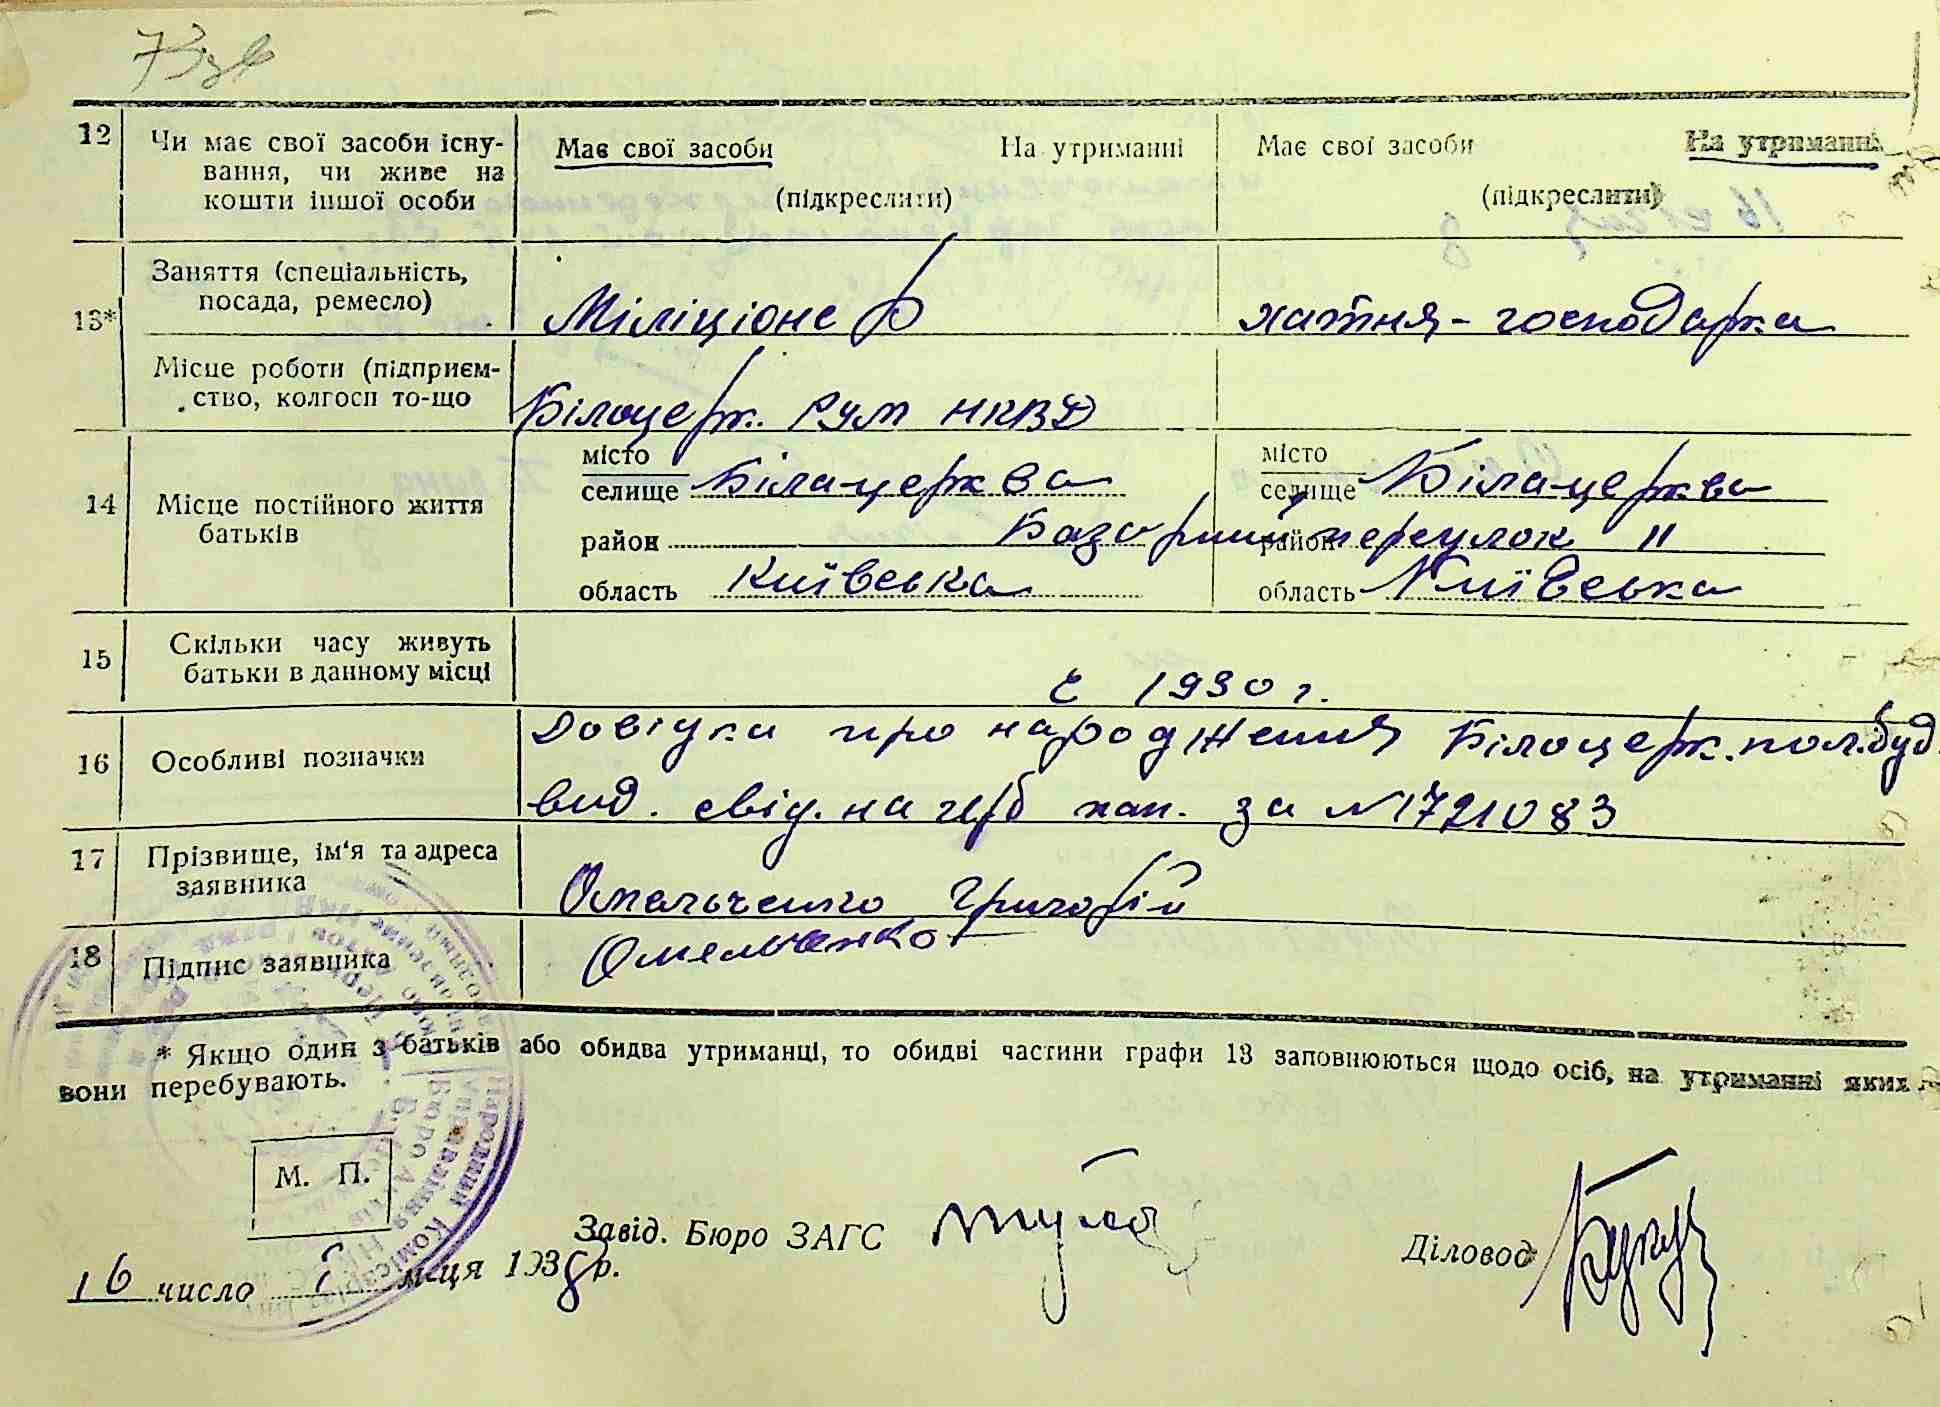 12 Чи має свої засоби існу- Має свої засоби На утриманні Має свої засоби На утриманні
вання, чи живе на
кошти іншої особи (підкреслити) (підкреслити)
Заняття (спеціальність,
посада, ремесло) Міліціонер хатня-господарка
13*
Місце роботи (підприєм-
ство, колгосп то-що Білоцерк. РУМ НКВД
місто місто
селище Біла-церква селище Біла-церква
14 Місце постійного життя
батьків район Базарний переулок 11 район
область Київська область Київська
15 Скільки часу живуть
батьки в данному місці с 1930 г.
16 Особливі позначки Довідка про народження Білоцерк. пол.буд.
вид. свід. на герб пап. за N1721083
17 Прізвище, ім'я та адреса
заявника Омельченко Григорій
18 Підпис заявника Омельченко
* Якщо один з батьків або обидва утриманці, то обидві частини графи 13 заповнюються щодо осіб, на утриманні яких
вони перебувають.
М. П.
Завід. Бюро ЗАГС Діловод
16 число місяця 1938 р.